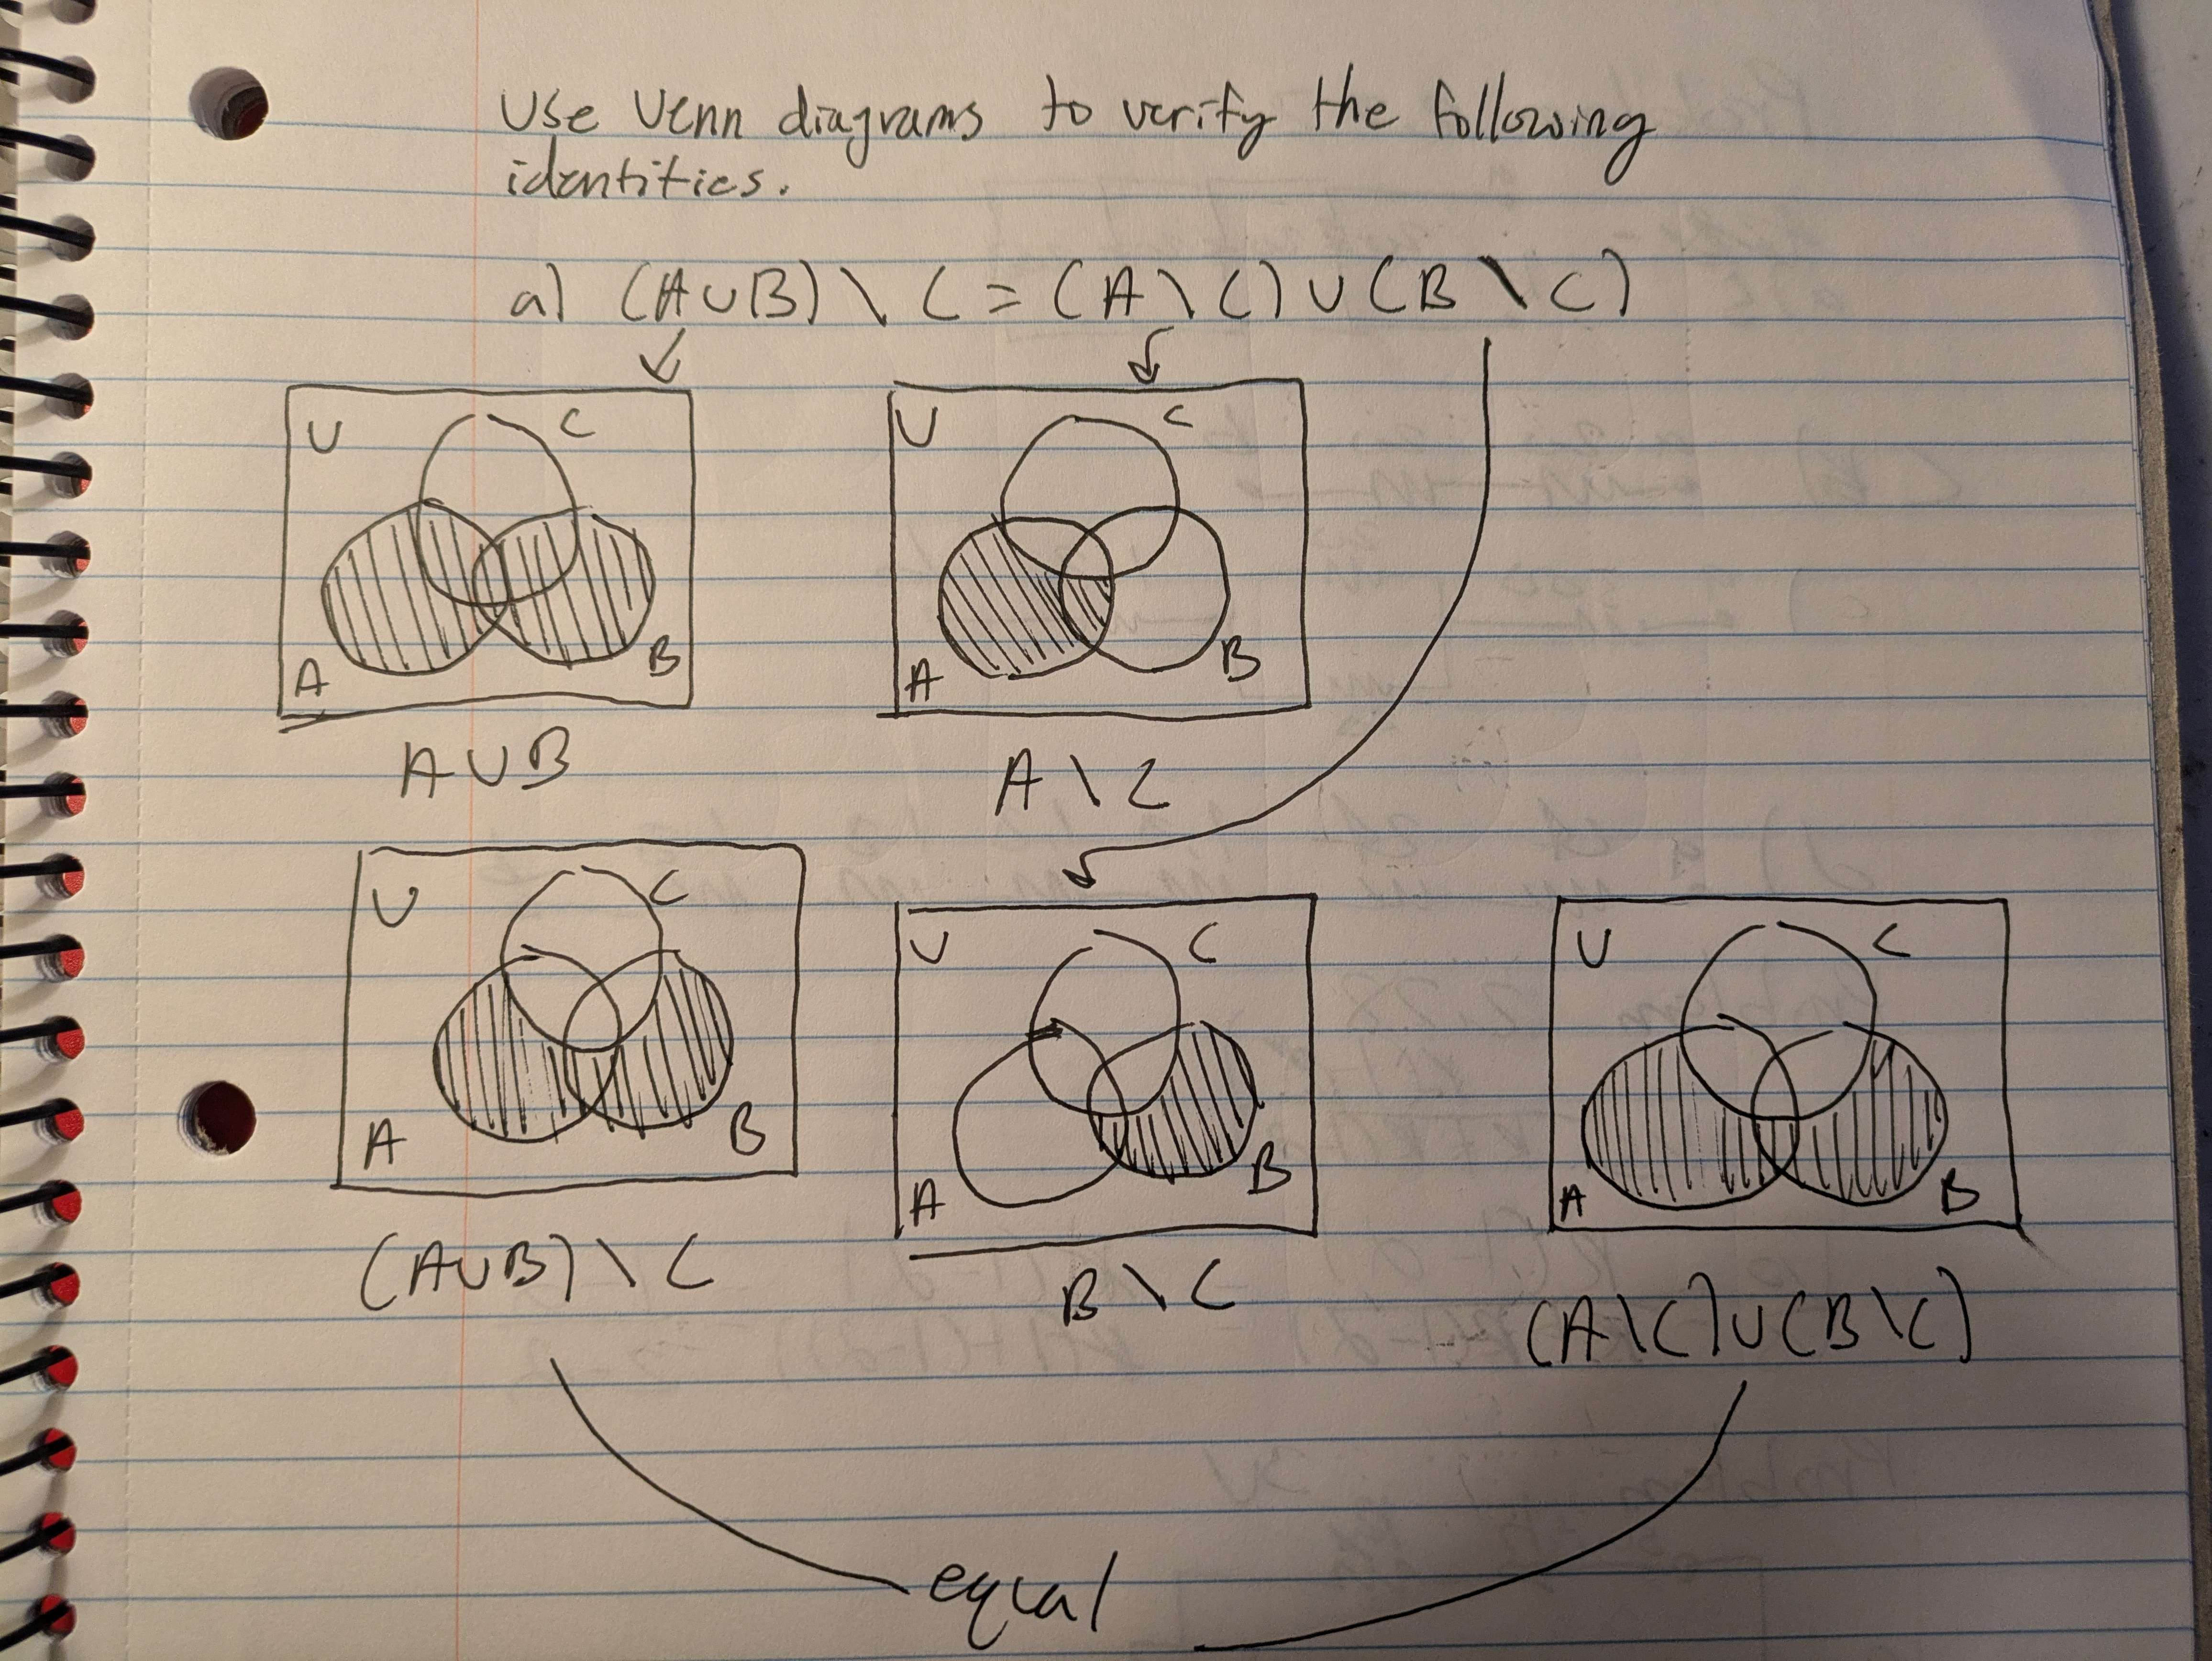 Use Venn diagrams to verify the following
identities.
a) (A∪B) \ C = (A \ C) ∪ (B \ C)
U C
A B
A ∪ B
U C
A B
A \ C
U C
A B
(A∪B) \ C
U C
A B
B \ C
U C
A B
(A\C)∪(B\C)
equal